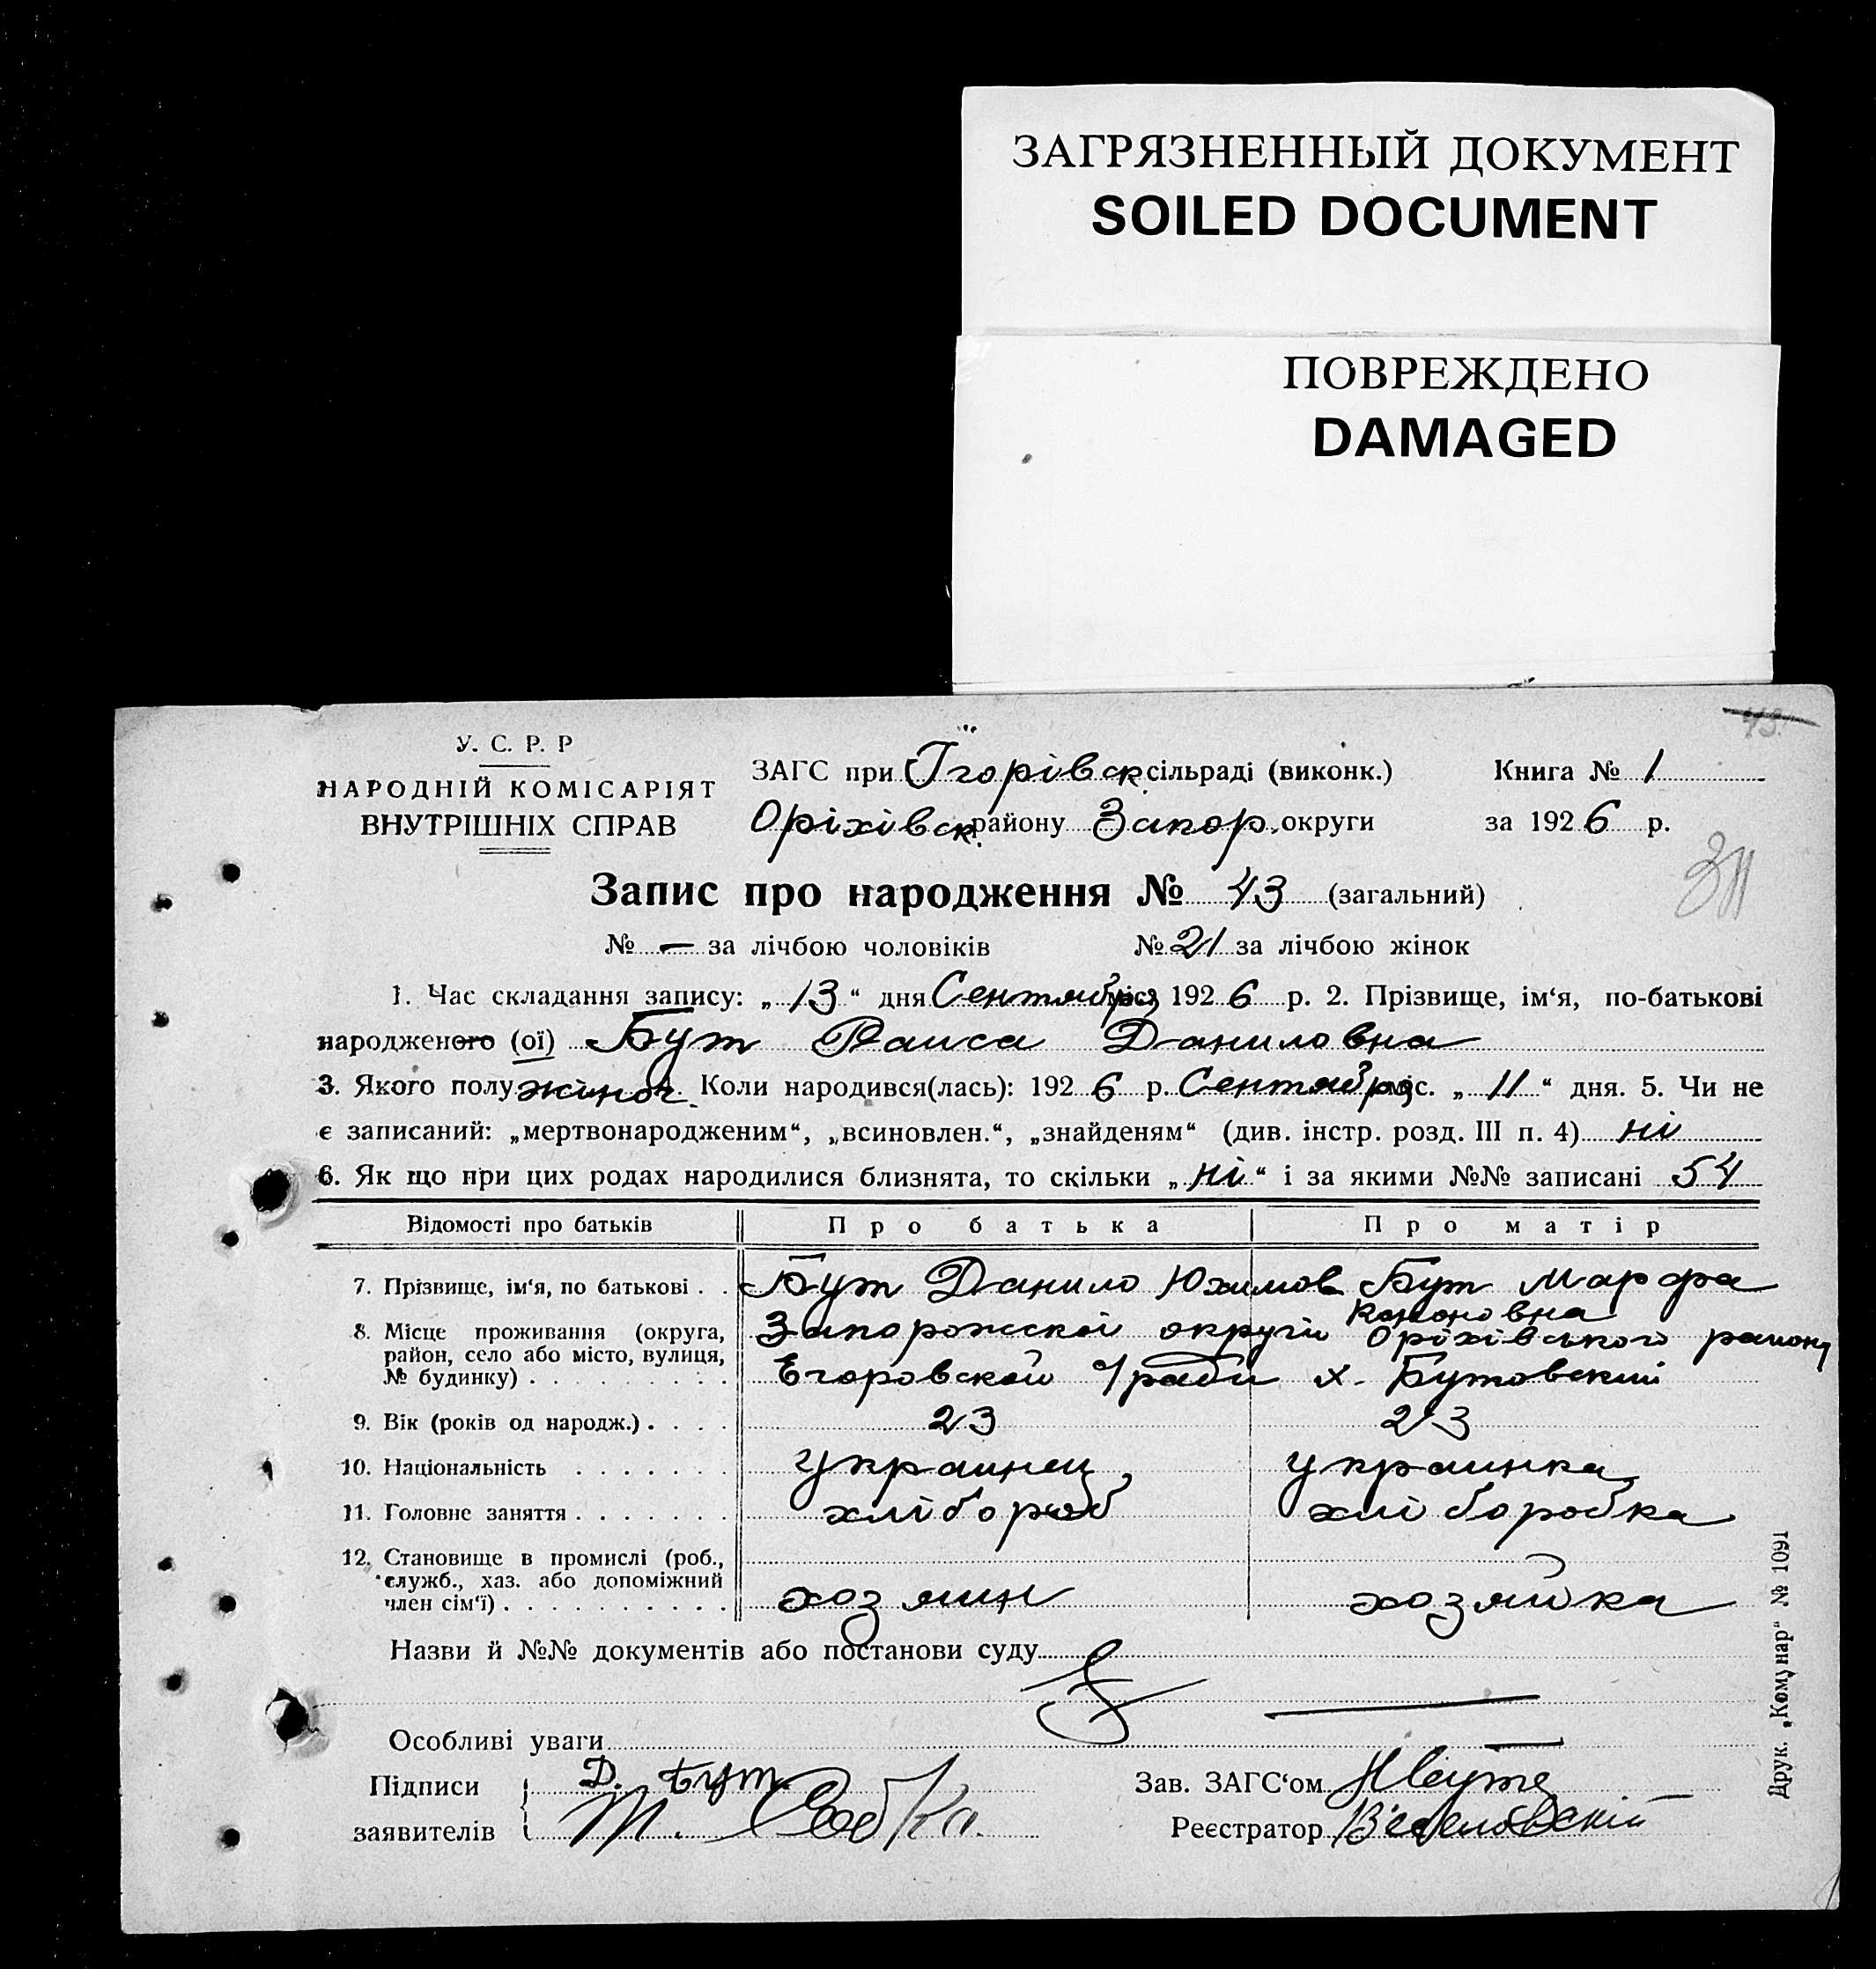 ЗАГРЯЗНЕННЫЙ ДОКУМЕНТ
SOILED DOCUMENT
ПОВРЕЖДЕНО
DAMAGED
43.
У. С. Р. Р
НАРОДНІЙ КОМІСАРІЯТ
ВНУТРІШНІХ СПРАВ
ЗАГС при Їгорівськ. сільраді (виконк.) Книга № 1
Оріхівськ. району Запор. округи за 1926 р.
Запис про народження № 43 (загальний)
№ — за лічбою чоловіків № 21 за лічбою жінок
1. Час складання запису: „13“ дня Сентября міс. 1926 р. 2. Прізвище, ім‘я, по-батькові
народженого (ої) Бут Раиса Даниловна
3. Якого полу жіноч. Коли народився(лась): 1926 р. Сентября міс. „11“ дня. 5. Чи не
є записаний: „мертвонародженим“, „всиновлен.“, „знайденям“ (див. інстр. розд. III п. 4) ні
6. Як що при цих родах народилися близнята, то скільки „ні“ і за якими №№ записані 54
Відомості про батьків Про батька Про матір
7. Прізвище, ім‘я, по батькові . . Бут Данило Юхимов Бут Марфа
Кононовна
8. Місце проживання (округа, район, село або місто, вулиця, № будинку) . . . . . . . . . Запорожской округи Оріхівського району
Егоровской с/ради х. Бутовский
9. Вік (років од народж.) . . . . 23 23
10. Національність . . . . . . . украинец украинка
11. Головне заняття . . . . . . . хлібороб хліборобка
12. Становище в промислі (роб., служб., хаз. або допоміжний член сім‘ї) . . . . . . . . . . хозяин хозяйка
Назви й №№ документів або постанови суду
Особливі уваги
Підписи заявителів Д. Бут.
Зав. ЗАГС‘ом
Реєстратор
Друк. „Комунар“ № 1091